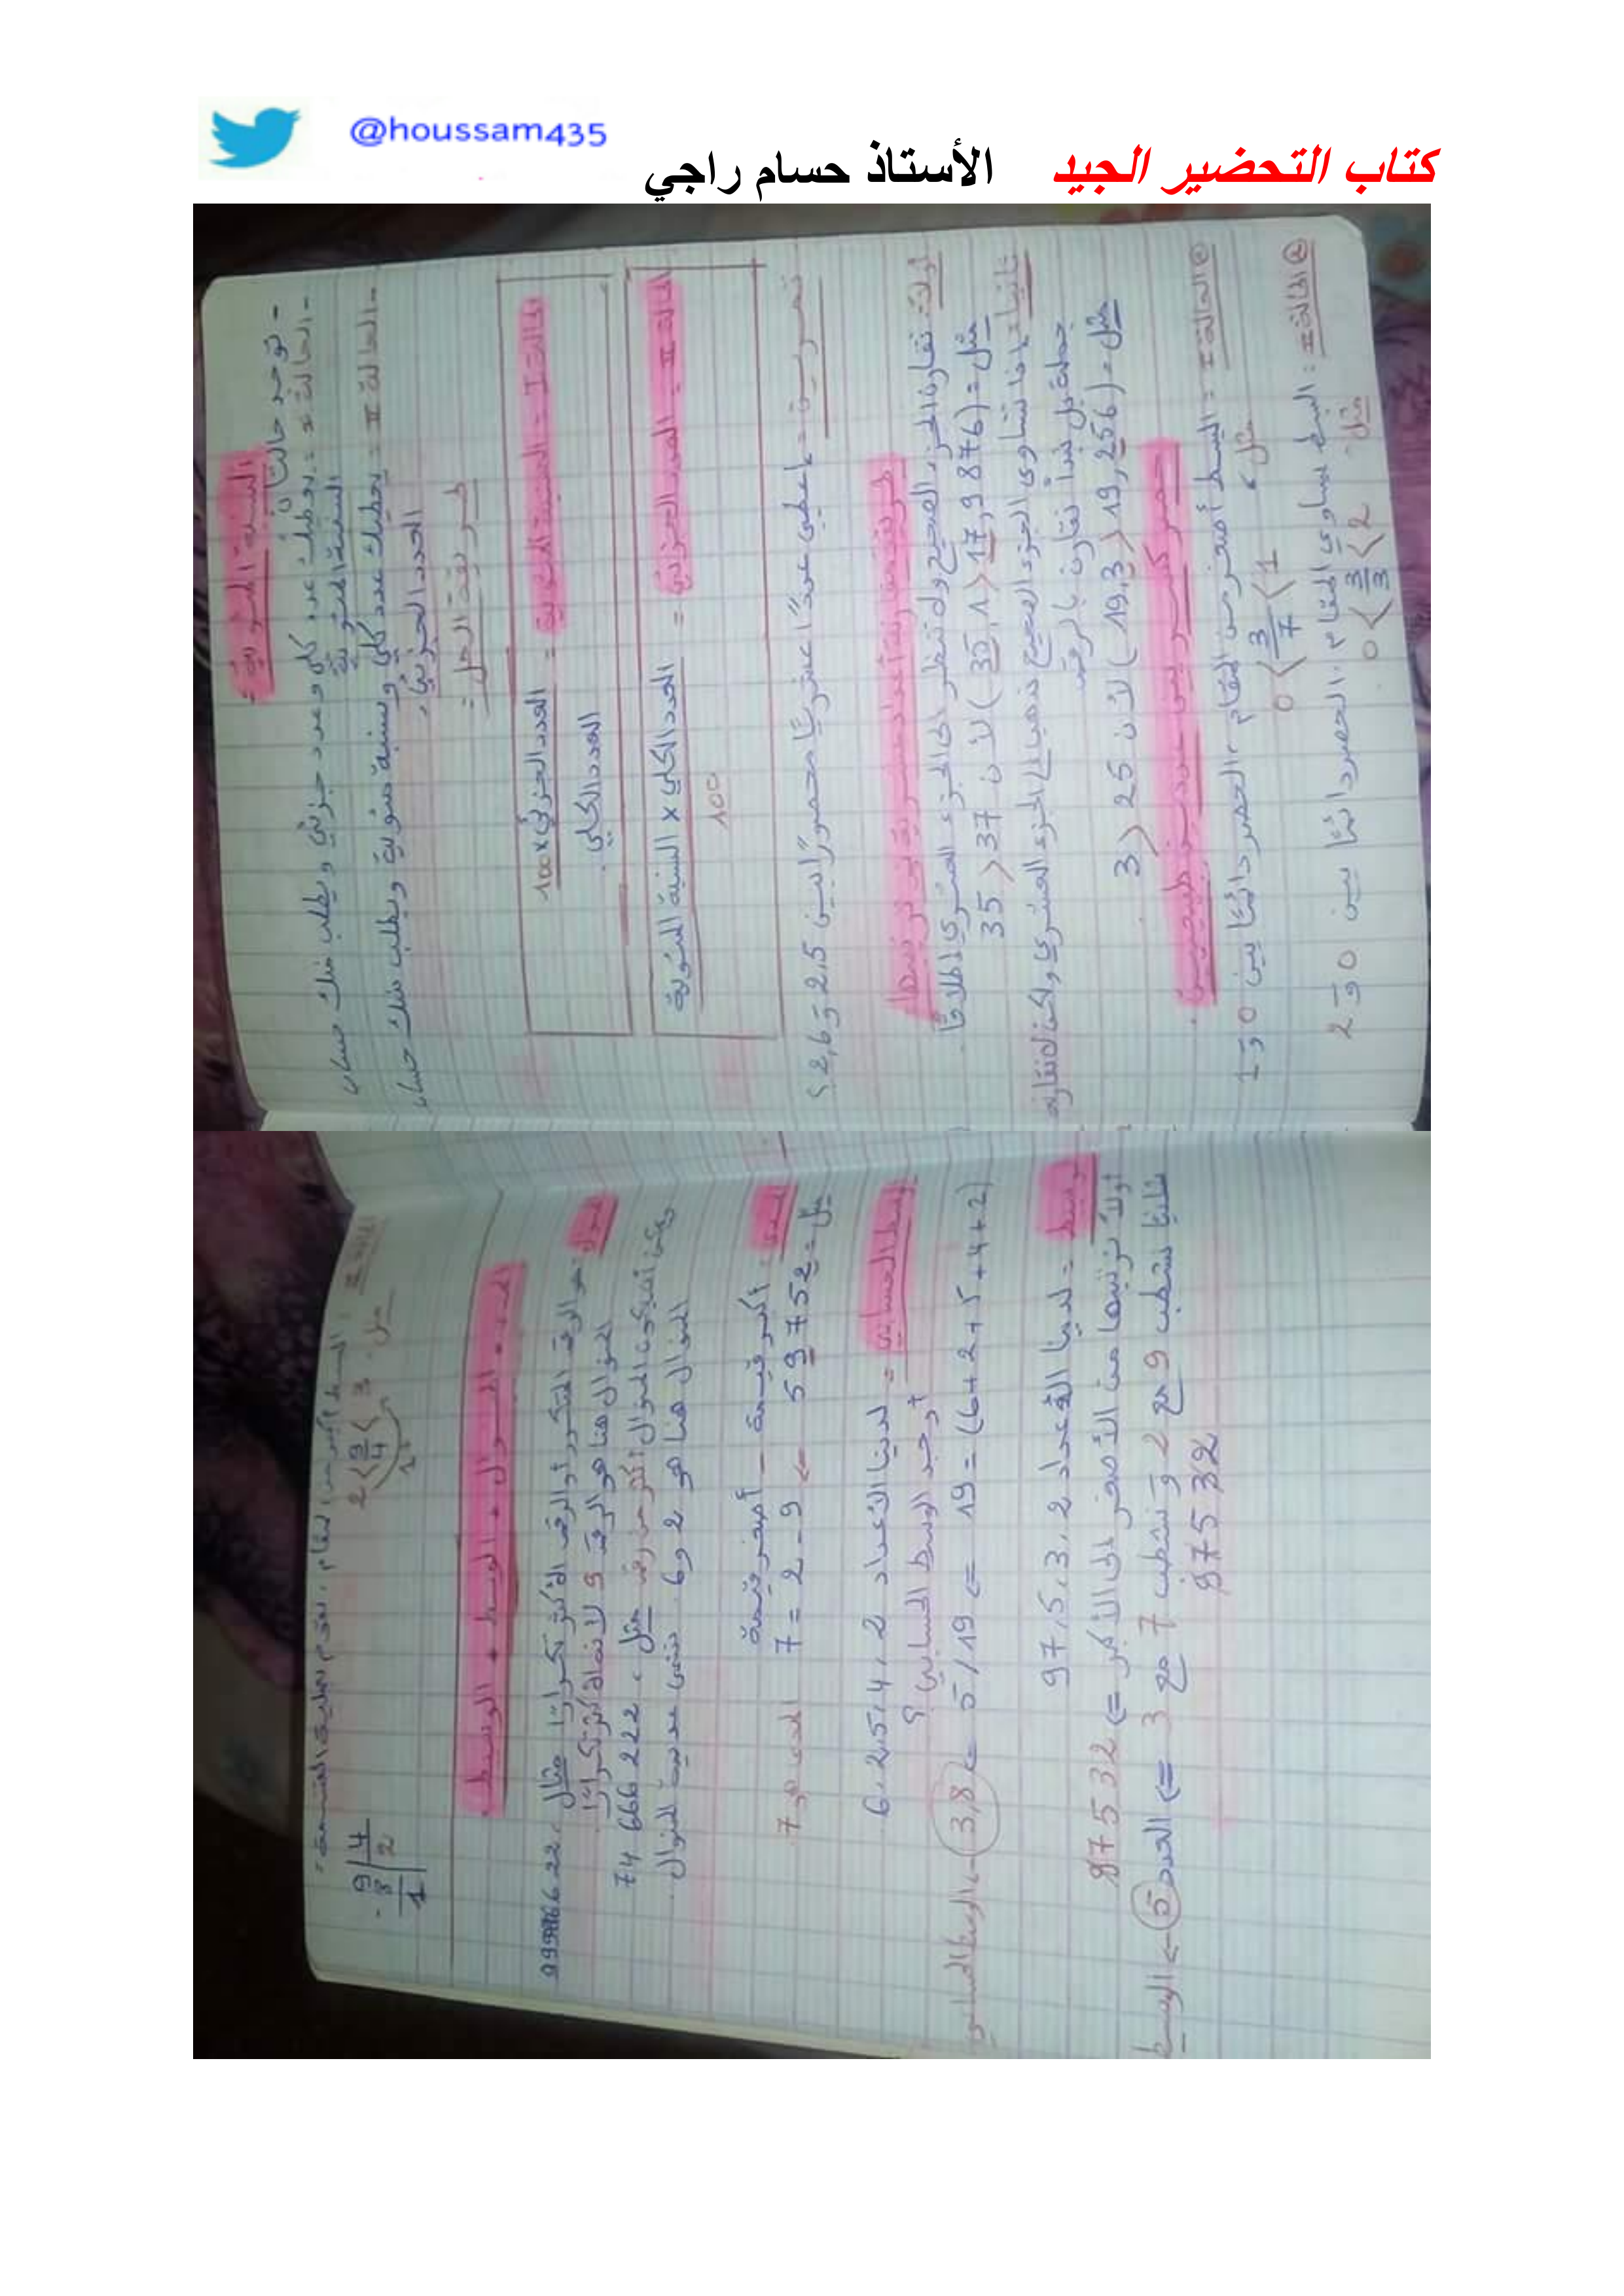 @houssam435
كتاب التحضير الجيد الأستاذ حسام راجي
النسبة المئوية
- توجد حالتان
- الحالة I = يعطيك عدد كلي وعدد جزئي ويطلب منك حساب
النسبة المئوية
- الحالة II = يعطيك عدد كلي ونسبة مئوية ويطلب منك حساب
العدد الجزئي
طريقة الحل =
الحالة I = النسبة المئوية = العدد الجزئي × 100
العدد الكلي
الحالة II = العدد الجزئي = العدد الكلي × النسبة المئوية
100
تمرين = اعطي عددًا عشريًا محصورًا بين 2,5 و 2,6 ؟
طريقة مقارنة أعداد عشرية أو ترتيبها
أولًا: نقارن الجزء الصحيح ولا ننظر إلى الجزء العشري إطلاقا
مثل = (17,9876 < 35,1) لأن 37 < 35
ثانيا: إذا تساوى الجزء الصحيح نذهب إلى الجزء العشري ولكن لا نقارنه
جملة بل نبدأ نقارن بالرقم
مثل = (19,256 < 19,3) لأن 25 < 3
حصر كسر بين عددين طبيعيين
الحالة I = البسط أصغر من المقام، الحصر دائمًا بين 0 و 1
مثل 0 < 3/7 < 1
الحالة II: البسط يساوي المقام، الحصر دائمًا بين 0 و 2
مثل 0 < 3/3 < 2
البسط أكبر من المقام، نقوم بعملية القسمة =
مثل 2 < 9/4 < 3
+1
9 4
- 8 2
1
المدى + المنوال + الوسط + الوسيط
المنوال: هو الرقم المتكرر أو الرقم الأكثر تكرارًا مثال 999866 22
المنوال هنا هو الرقم 9 لأنه الأكثر تكرارًا
يمكن أن يكون المنوال أكثر من رقم مثل 74 666 222
المنوال هنا هو 2 و 6
المدى: أكبر قيمة - أصغر قيمة
مثل = 59752 ← 9 - 2 = 7 المدى هو 7
الوسط الحسابي = لدينا الأعداد 2، 4، 5، 2، 6
أوجد الوسط الحسابي ؟
(6+2+5+4+2) = 19 ⇐ 19/5 ⇐ 3,8 ← الوسط الحسابي
وسيط = لدينا الأعداد 2، 3، 5، 97
أولًا نرتبها من الأصغر إلى الأكبر ⇐ 97532
ثانيا نشطب 9 مع 2 و نشطب 7 مع 3 ⇐ العدد 5 ← الوسيط
97532